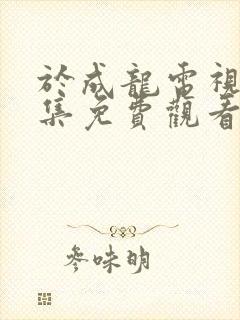 於成龍電視
集免費觀看
參味明